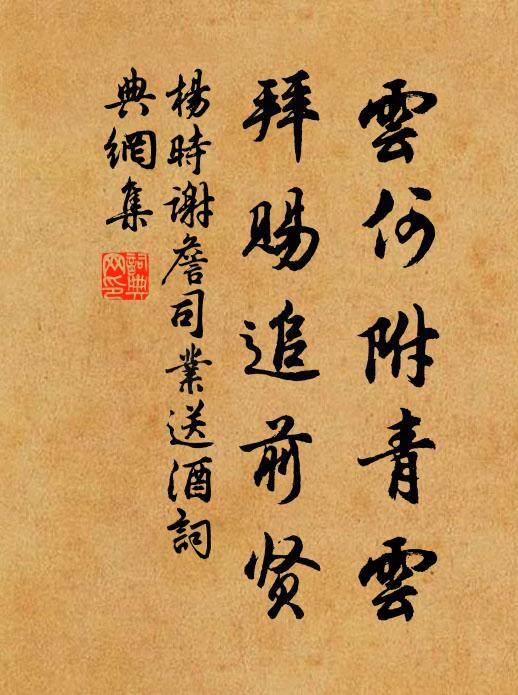 雲何附青雲
拜賜追前贤
楊時謝詹司業送酒詞
典網集
詞典
网印